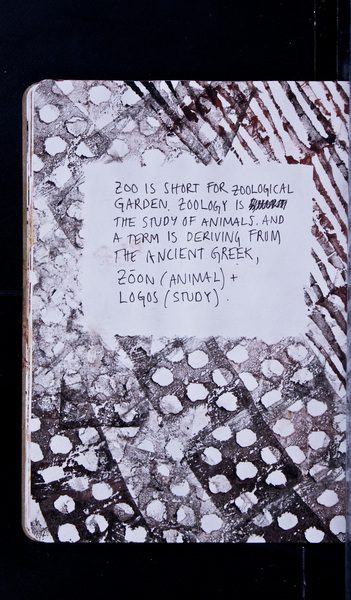 ZOO IS SHORT FOR ZOOLOGICAL
GARDEN. ZOOLOGY IS
THE STUDY OF ANIMALS. AND
A TERM IS DERIVING FROM
THE ANCIENT GREEK,
ZŌON (ANIMAL) +
LOGOS (STUDY).